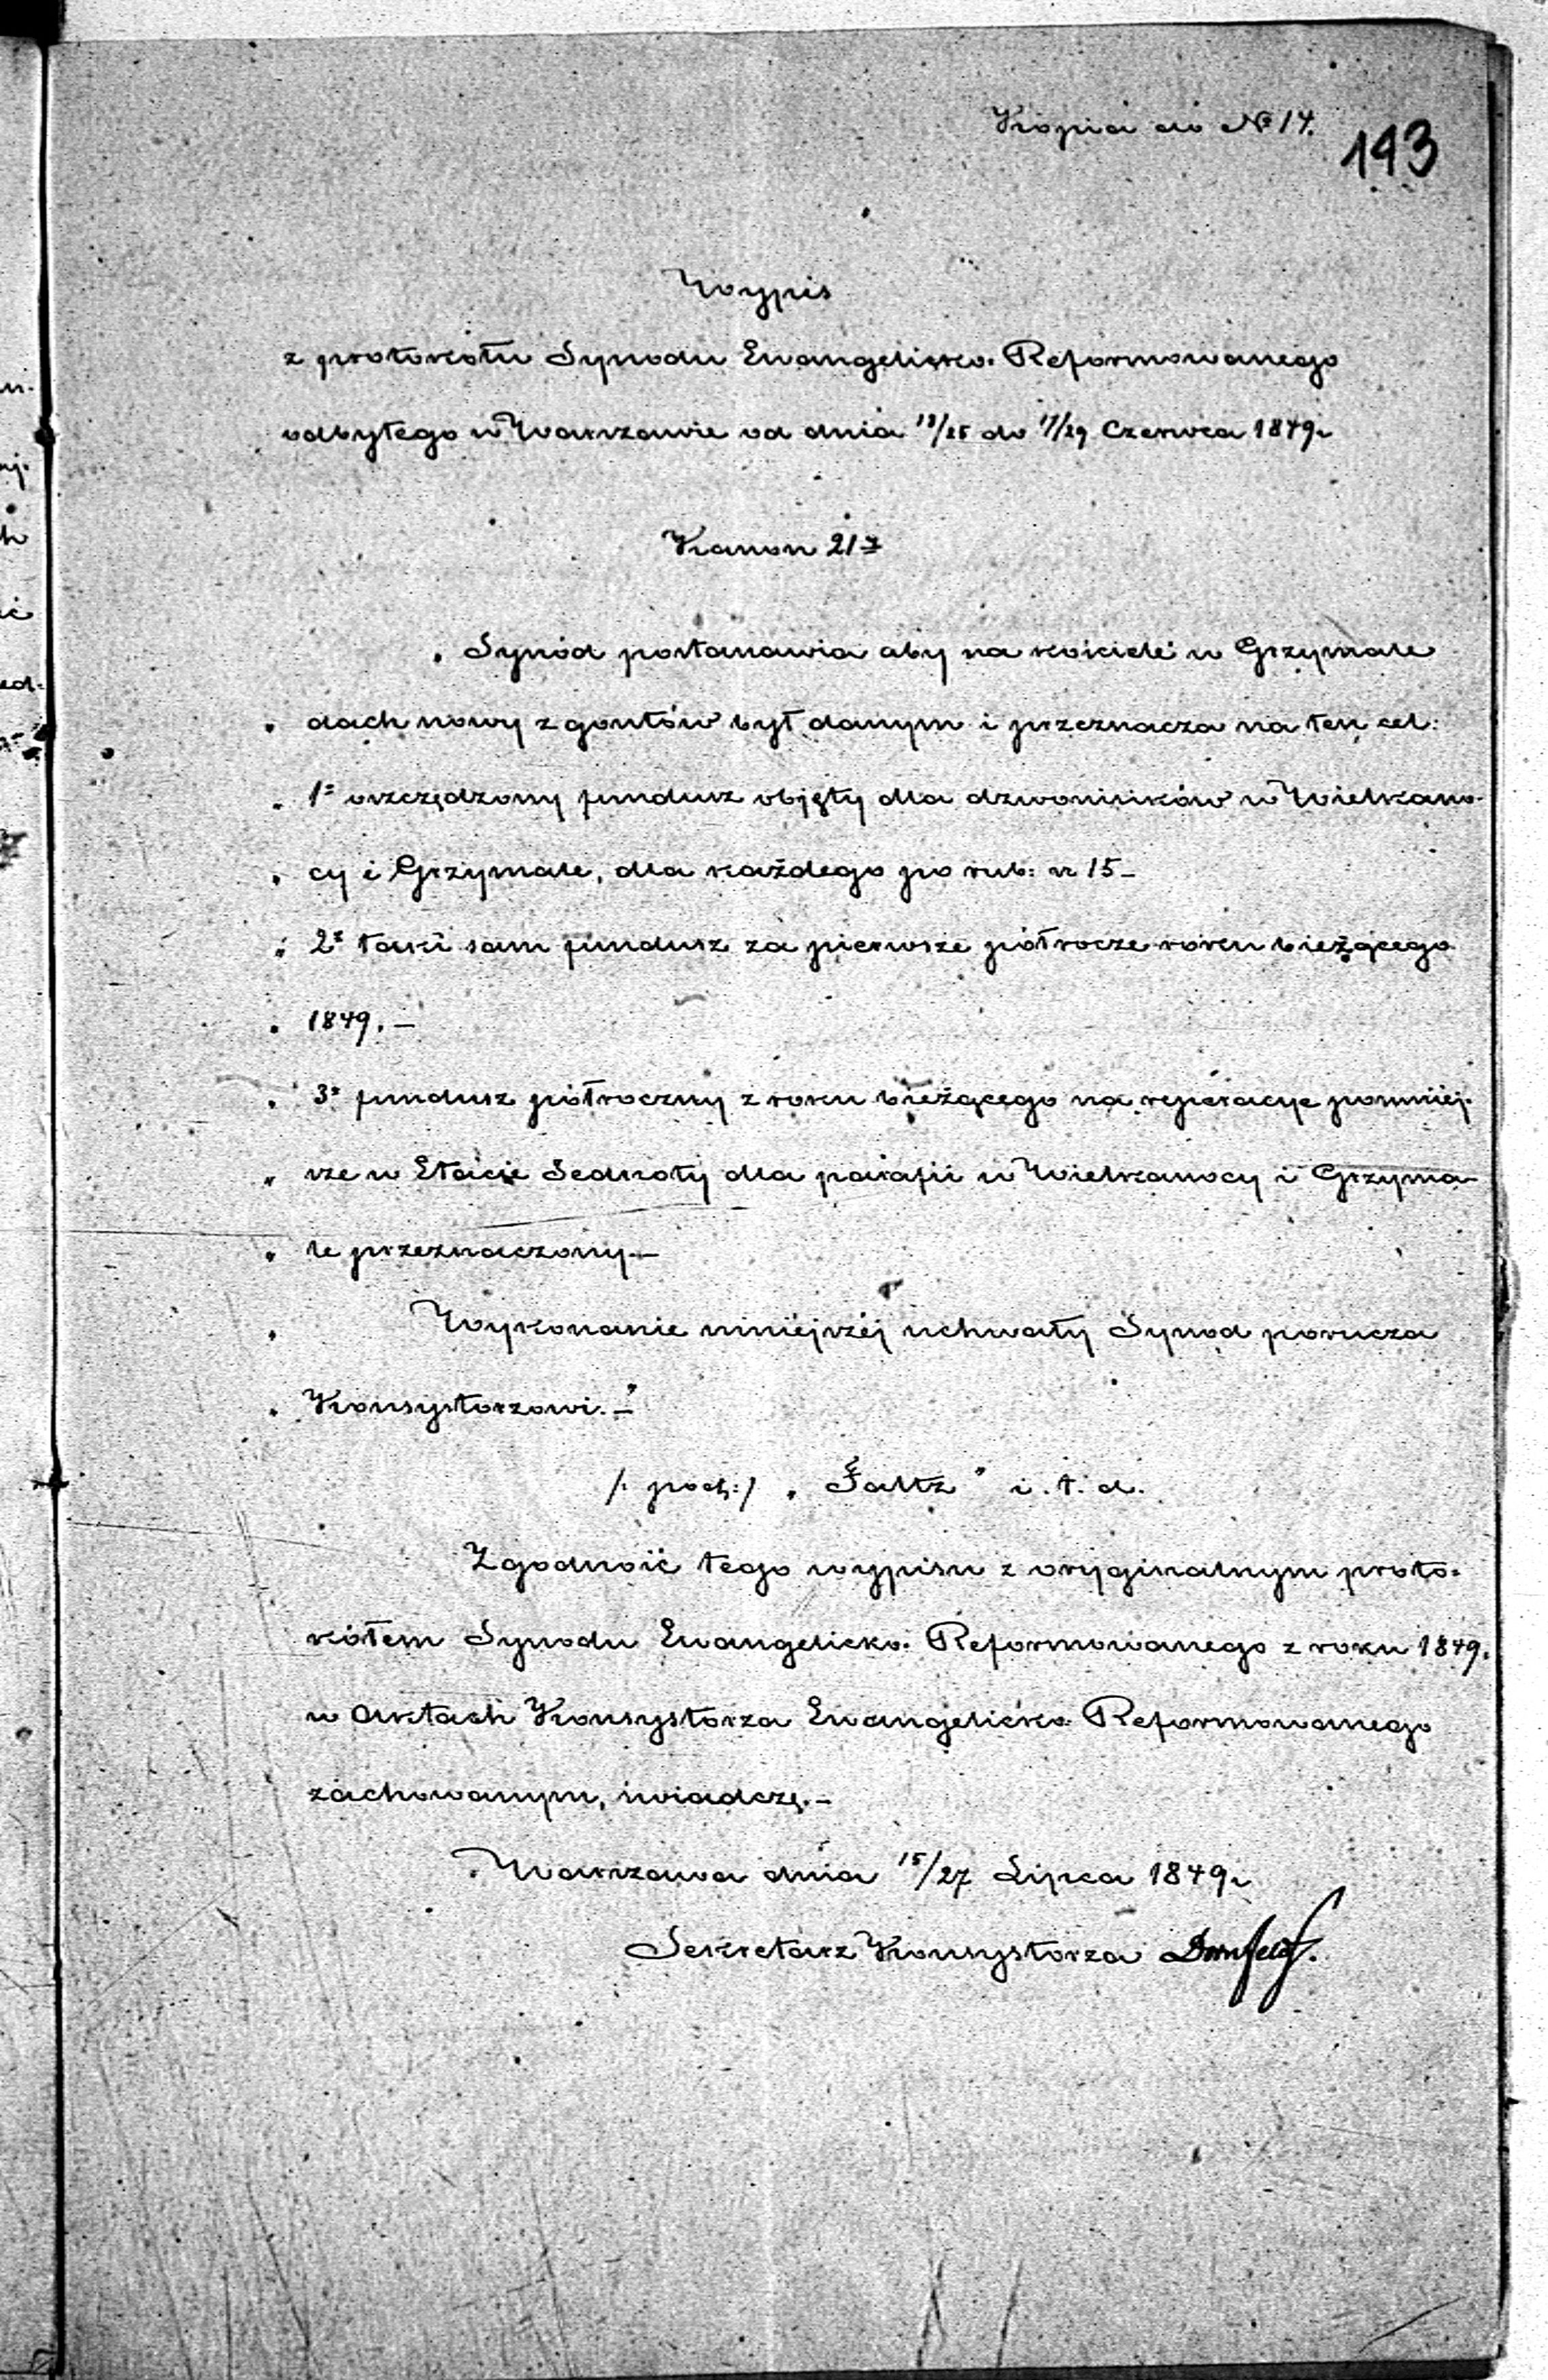 Kopia do № 14.
193
Wypis
z protokołu Synodu Ewangelicko-Reformowanego
odbytego w Warszawie od dnia 13/25 do 17/29 Czerwca 1849 r
Kanon 21y
„ Synód postanawia aby na kościele w Grzymale
„ dach nowy z gontów był danym i przeznacza na ten cel:
„ 1° oszczędzony fundusz objęty dla dzwonników w Wielkano-
„ cy i Grzymale, dla każdego po rub: sr 15 –
„ 2° taki sam fundusz za pierwsze półrocze roku bieżącego
„ 1849. –
„ 3° fundusz półroczny z roku bieżącego na reperacye pomniej-
„ sze w Etacie Jednoty dla parafii w Wielkanocy i Grzyma-
„ le przeznaczony. –
„ Wykonanie niniejszéj uchwały Synod porucza
„ Konsystorzowi. – "
/: podp: / „ Faltz " i. t. d.
Zgodność tego wypisu z oryginalnym proto-
kółem Synodu Ewangelicko-Reformowanego z roku 1849.
w Aktach Konsystorza Ewangelicko-Reformowanego
zachowanym, świadczę. –
Warszawa dnia 15/27 Lipca 1849 r
Sekretarz Konsystorza